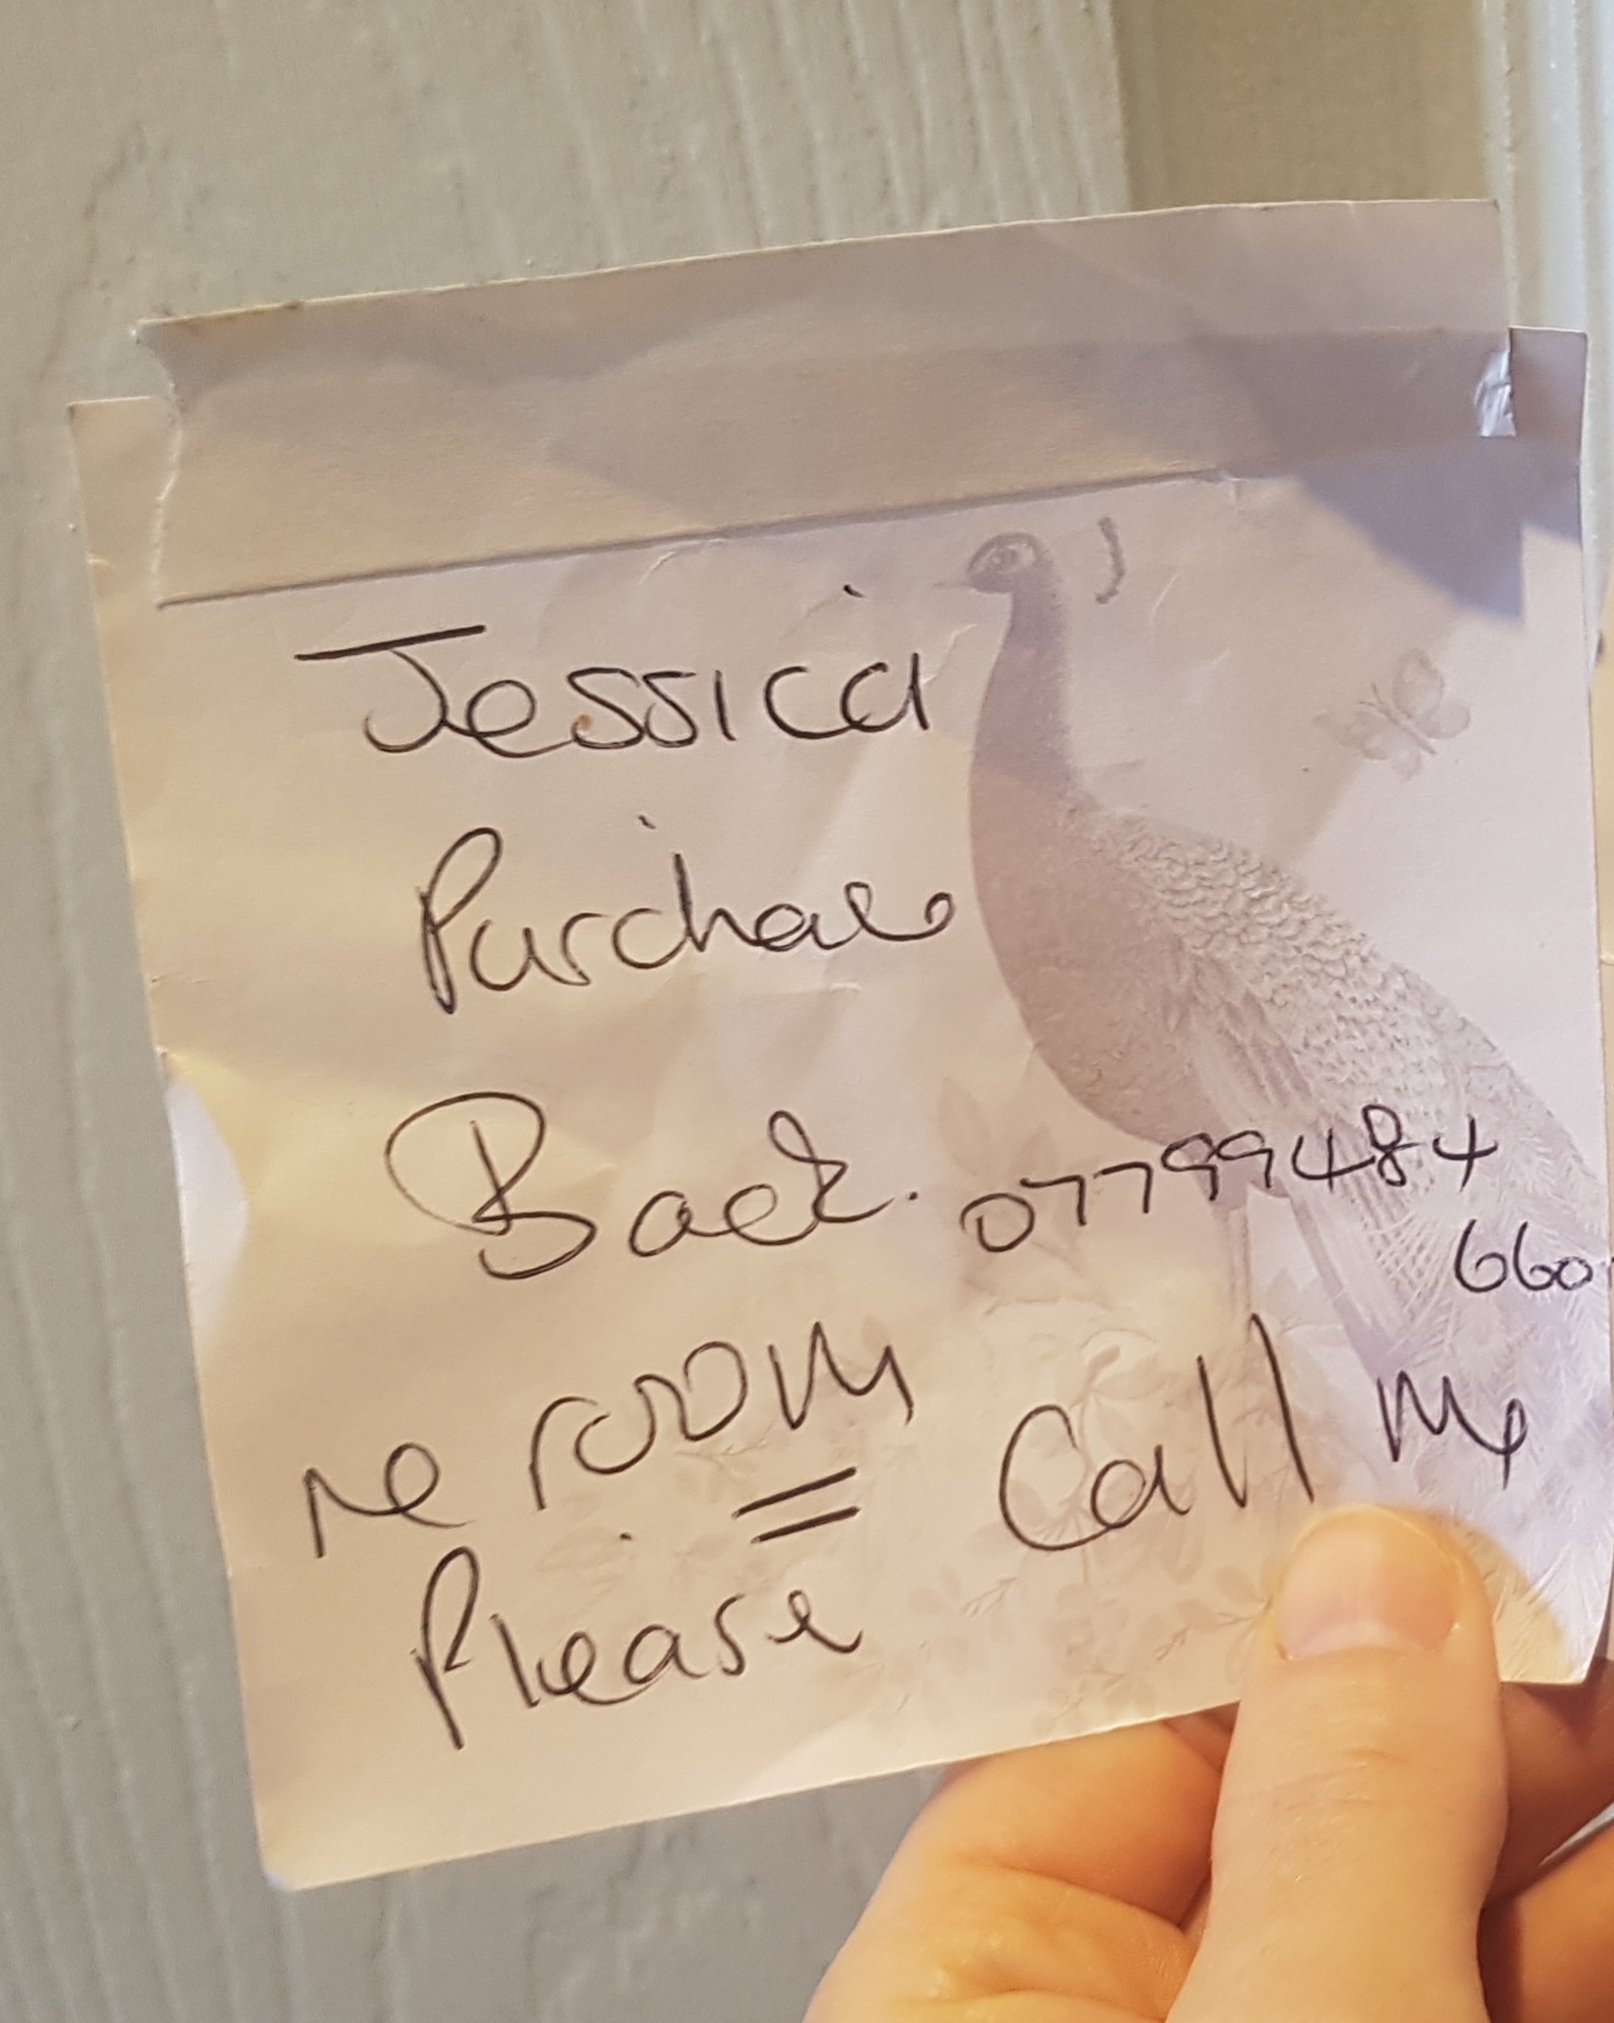 Jessica
Purchase
Back. 07799484
660
re room
= Call me
Please